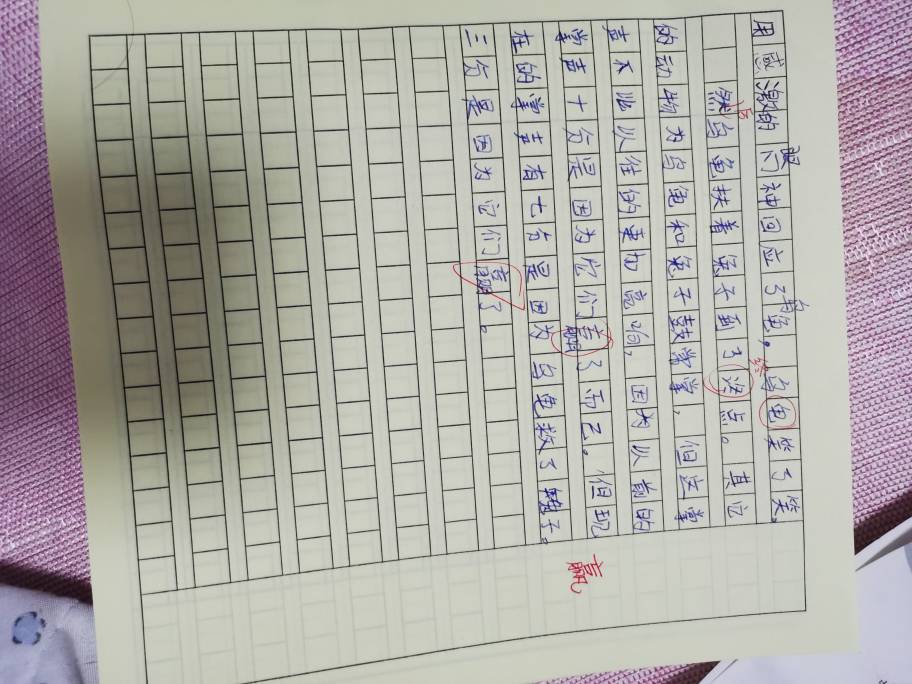 用感激的眼神回应了乌龟。乌龟笑了笑，
然后乌龟扶着兔子到了点。其它
的动物为乌龟和兔子鼓掌，但这掌
声不比以往的更加亮响，因为以前的
掌声十分是因为它们赢了而已。但现
在的掌声有七分是因为乌龟救了兔子。
三分是因为它们赢了。
终
赢